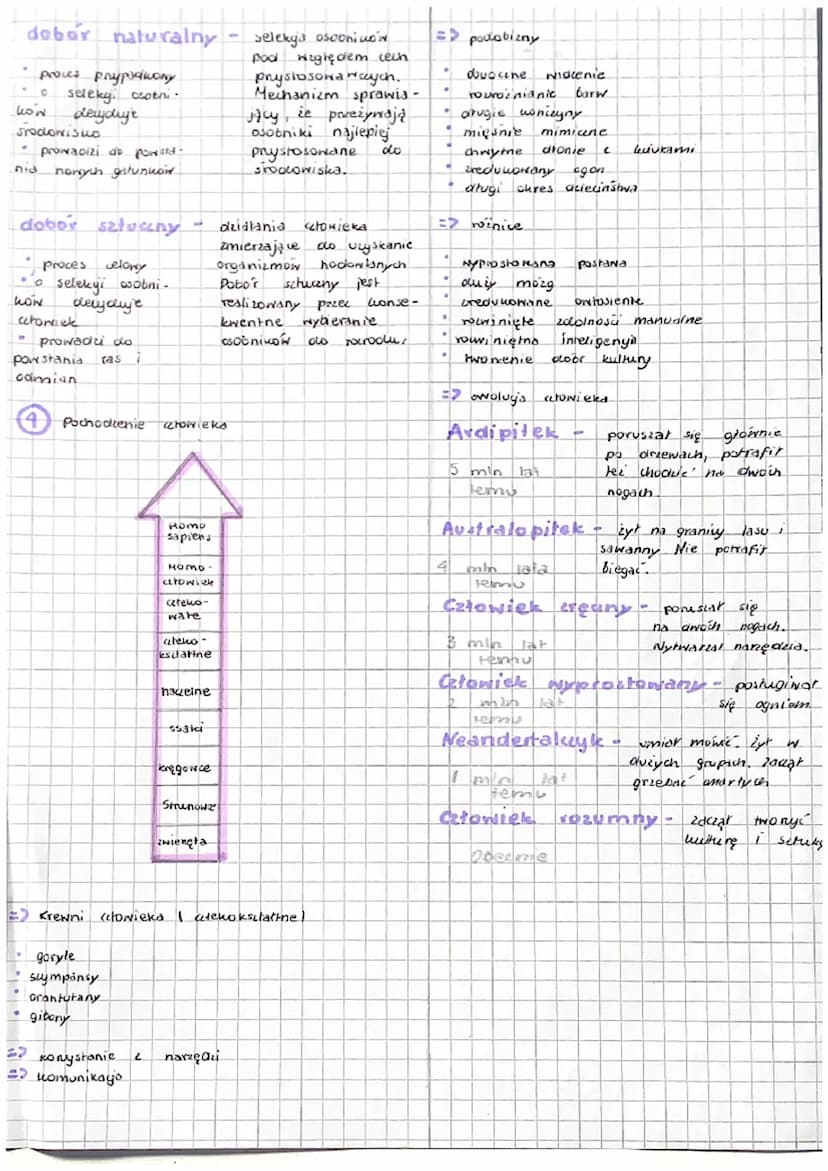 dobór naturalny - selekcja osobników
pod względem cech
przystosowawczych.
Mechanizm sprawia-
jący, że przeżywają
osobniki najlepiej
przystosowane do
środowiska.
• proces przypadkowy
• o selekcji osobni-
ków decyduje
środowisko
• prowadzi do powsta-
nia nowych gatunków
dobór sztuczny - działania człowieka
zmierzające do uzyskanie
organizmów hodowlanych
Dobór sztuczny jest
realizowany przez konse-
kwentne wybieranie
osobników do rozrodu.
• proces celowy
• o selekcji osobni-
ków decyduje
człowiek
• prowadzi do
powstania ras i
odmian
4 Pochodzenie człowieka
Homo
sapiens
Homo-
człowiek
człeko-
wate
człeko-
kształtne
naczelne
ssaki
kręgowce
Strunowe
zwierzęta
=> Krewni człowieka (człekokształtne)
• goryle
• szympansy
• orantutany
• gibony
=> korzystanie z narzędzi
=> komunikacja
=> podobizny
• dwoczne widzenie
• rozróżnianie barw
• długie kończyny
• mięśnie mimiczne
• chwytne dłonie z kciukami
• zredukowany ogon
• długi okres dzieciństwa
=> różnice
• wyprostowana postawa
• duży mózg
• zredukowane owłosienie
• rozwinięte zdolności manualne
• rozwinięta inteligencja
• tworzenie dóbr kultury
=> ewolucja człowieka
Ardipitek - poruszał się głównie
po drzewach, potrafił
też chodzić na dwóch
nogach.
5 mln lat
temu
Australopitek - żył na granicy lasu i
sawanny. Nie potrafił
biegać.
4 mln lata
temu
Człowiek zręczny - poruszał się
na dwóch nogach.
Wytwarzał narzędzia.
3 mln lat
temu
Człowiek wyprostowany - posługiwał
się ogniem
2 mln lat
temu
Neandertalczyk - umiał mówić. Żył w
dużych grupach. Zaczął
grzebać zmarłych
1 mln lat
temu
Człowiek rozumny - zaczął tworzyć
kulturę i sztukę
Obecnie